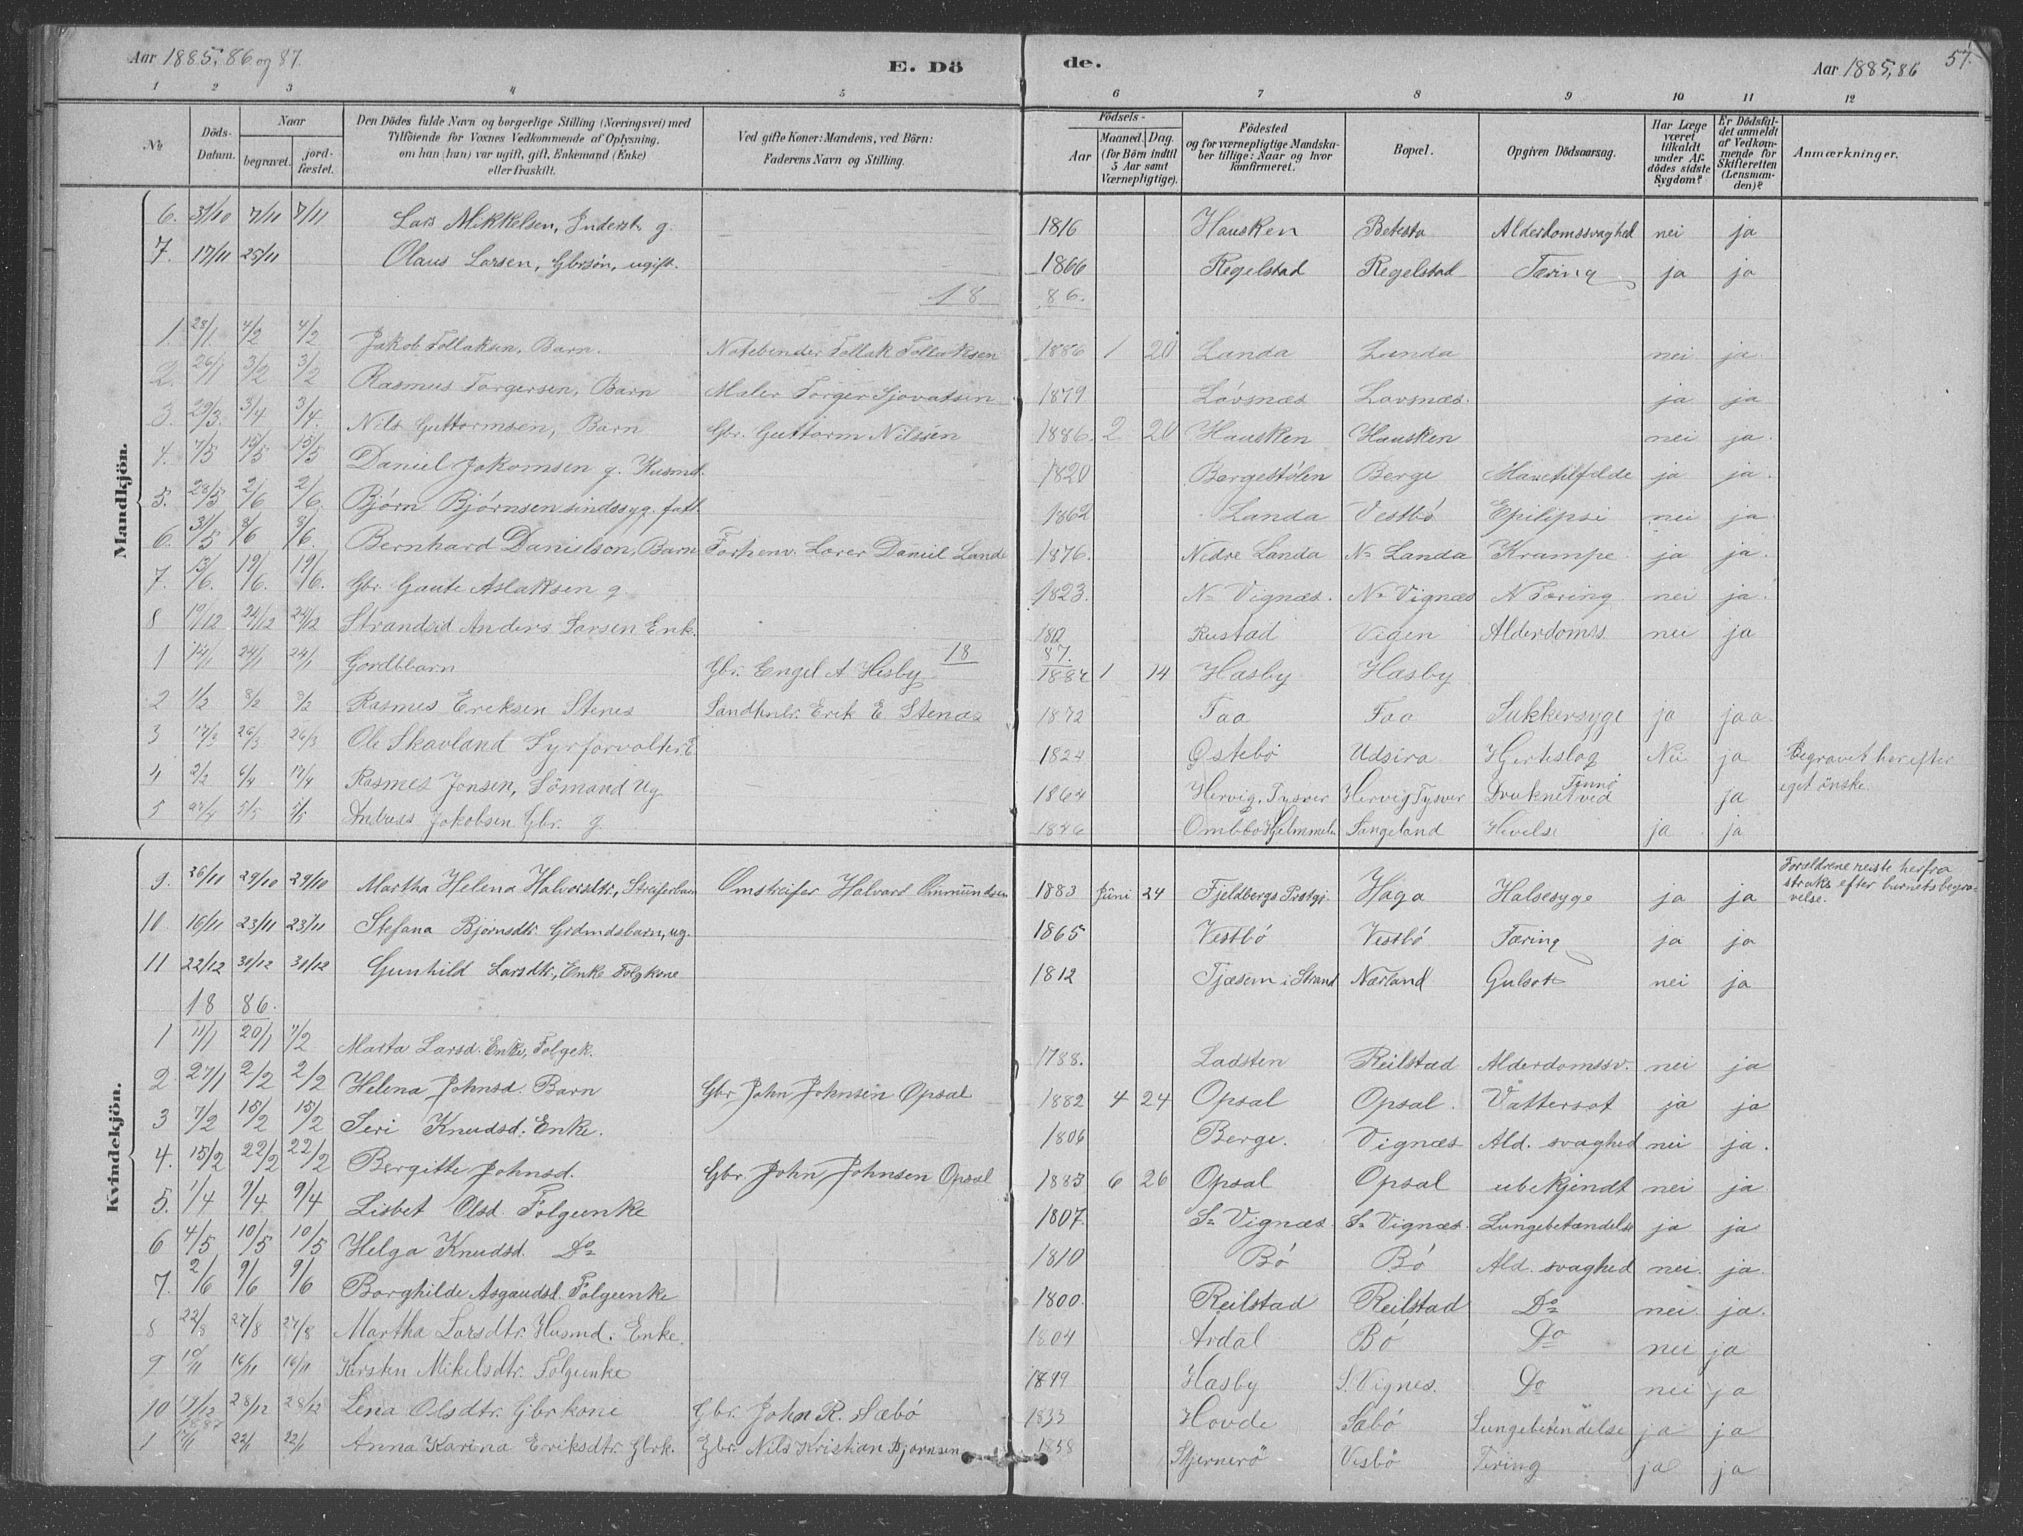 Aar 1885, 86 og 87. E. Dö de. Aar 1885, 86 57.
1 2 3 4 5 6 7 8 9 10 11 12
No Döds-Datum. Naar begravet. jordfæstet. Den Dödes fulde Navn og borgerlige Stilling (Næringsvei) med Tilföiende for Voxnes Vedkommende af Oplysning, om han (hun) var ugift, gift, Enkemand (Enke) eller fraskilt. Ved gifte Koner: Mandens, ved Börn: Faderens Navn og Stilling. Födsels- Aar Maaned. Dag. (for Börn indtil 5 Aar samt Værnepligtige). Födested og for værnepligtige Mandskaber tillige: Naar og hvor konfirmeret. Bopæl. Opgiven Dödsaarsag. Har Læge været tilkaldt under Afdödes sidste Sygdom? Er Dödsfaldet anmeldt af Vedkommende for Skifteretten (Lensmanden)? Anmærkninger.
Mandkjön.
6. 31/10 7/11 7/11 Lars Mikkelsen, Inderst, g. 1816 Hausken Betesta Alderdomssvaghed nei ja
7. 17/11 25/11 Olaus Larsen, Gbrsøn, ugift. 1866 Regelstad Regelstad Tæring ja ja
18 86.
1. 28/1 4/2 4/2 Jakob Tollaksen, Barn. Notebinder Tollak Tollaksen 1886 1 20 Landa Landa nei ja.
2. 26/1 3/2 3/2 Rasmus Torgersen, Barn Maler Torger Sjovatsen 1879 Løvsnæs Løvsnæs. ja ja
3. 29/3. 3/4 3/4. Nils Guttormsen, Barn Gbr. Guttorm Nilssen 1886. 2 20 Hausken Hausken nei ja.
4. 7/5 15/5 15/5 Daniel Jakomsen g. Husmd. 1820 Bergestølen Berge Mavetilfelde ja ja.
5. 28/5 2/6 2/6. Bjørn Bjørnsen sindssyg. fatt. 1862 Landa Vestbø Epilipsi nei ja.
6. 31/5 8/6 8/6. Bernhard Danielson, Barn Forhenv. Lærer Daniel Lande 1876. Nedre Landa N. Landa Krampe. ja ja.
7. 13/6. 19/6. 19/6. Gbr. Gaute Aslaksen g 1823. N. Vignæs. N. Vignæs N Tæring nei ja.
8 19/12 24/12 24/12 Strandsid Anders Larsen Enk. 1812 Rustad Vigen Alderdomss. nei ja
18 87.
1 14/1 24/1 24/1 Gbr. Engel A Hesby 1 14 Hæsby Hæsby
2 1/2 8/2 8/2 Rasmus Eriksen Stenes Landhnlr. Erik E Stenæs 1872 Taa Taa Sukkersyge ja jaa
3 17/3 26/3 26/3 Ole Skavland Fyrforvalter E 1824 Østebø Udsira Hjerteslag Nei ja Begravet her efter eget ønske.
4 2/2 6/4 17/4 Rasmus Jonsen, Sömand ug 1864 Hervig, Tysver Hervig Tysver Druknet ved ja
5 5/5 5/5 Andreas Jakobsen Gbr. g. Ombbo Helmmeln Sangeland Hevelse ja ja
Kvindekjön.
9. 26/11 29/10 29/10 Martha Helena Halvorsdtr, Streiferbarn Omstreifer Halvard Ommundsen 1883 Juni 24 Fjeldbergs Prstgj. Haga Halsesyge ja ja Foreldrene reiste herfra straks efter barnets begravelse.
10. 16/11 23/11 23/11 Stefana Bjørnsdtr. Grdmdsbarn, ug. 1865 Vestbø Vestbø Tæring ja ja
11 22/12 31/12 31/12 Gunhild Larsdtr, Enke Folgkone 1812 Tjæsem i Strand Nærland Gulsot nei ja
18 86.
1 11/1 20/1 7/2 Marta Larsd. Enke, Folgek. 1788. Ladsten Reilstad Alderdomssv. nei ja
2 27/1 2/2 2/2 Helena Johnsd. Barn Gbr John Johnsen Opsal 1882 4 24 Opsal Opsal. Vattersot ja ja
3 7/2 15/2 15/2 Seri Knudsd. Enke. 1806 Berge. Vignæs Ald. svaghed nei ja.
4. 15/2 22/2 22/2 Bergitte Johnsd. Gbr. John Johnsen Opsal 1883 6 26 Opsal Opsal ubekjendt nei ja
5. 1/4 9/4 9/4 Lisbet Olsd. Folgeenke 1807. S. Vignæs. S. Vignæs. Lungebetændelse ja ja
6 4/5 10/5 10/5 Helga Knudsd. Do 1810 Bø Bø Ald. svaghed nei. ja.
7. 2/6 9/6 9/6 Borghilde Asgautsd. Folgeenke 1800. Reilstad Reilstad Do nei ja.
8 22/8 27/8 27/8 Martha Larsdtr. Husmd. Enke. 1804 Ardal Bø Do nei ja
9 10/11 16/11 16/11 Kirsten Mikelsdtr. Folgeenke Hæsby S. Vignes. Do nei ja
10 17/12 28/12 28/12 Lena Olsdtr. Gbrkone Gbr. John R. Sæbø 1833 Hovde Sæbø Lungebetendelse ja ja
1887
1 17/1 22/1 22/1 Anna Karina Eriksdtr Gbrk. Gbr. Nils Kristian Bjørnsen 1858 Stjernerö Vesbø Tering ja ja